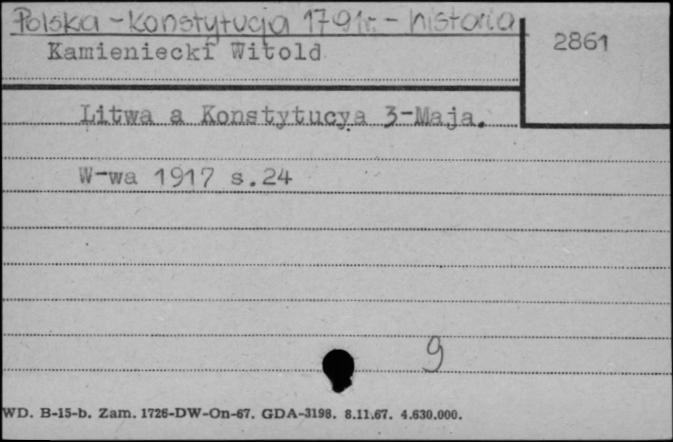 Polska - Konstytucja 1791r. - historia
Kamieniecki Witold
2861
Litwa a Konstytucya 3-Maja.
W-wa 1917 s.24
9
WD. B-15-b. Zam. 1726-DW-On-67. GDA-3198. 8.11.67. 4.630.000.